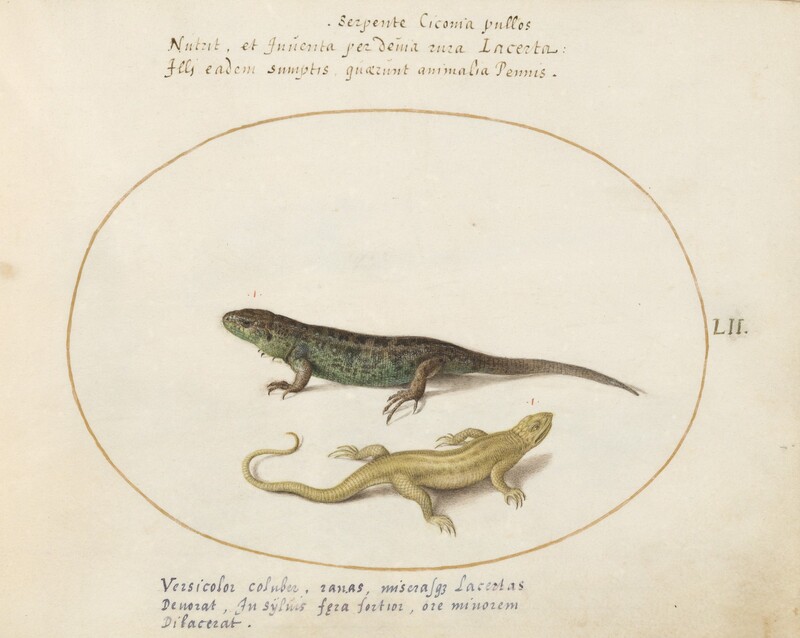 . Serpente Ciconia pullos
Nutrit, et Inūenta per deūia rura Lacerta:
Illi eadem sumptis quærunt animalia Pennis.
.1.
LII.
.1.
Versicolor coluber, ranas, miserasqꝫ Lacertas
Deuorat, In sÿluis fęra fortior, ore minorem
Dilacerat.